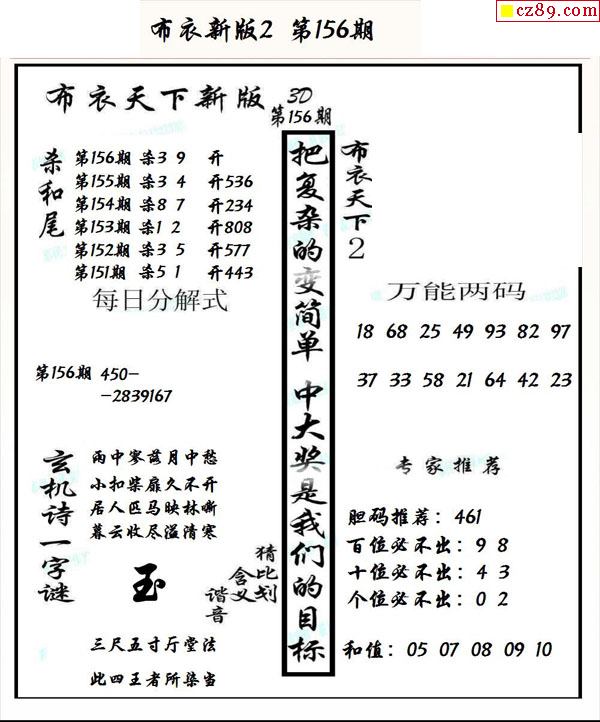 cz89.com
布衣新版2 第156期
布衣天下新版 3D
第156期
杀和尾
第156期 杀3 9 开
第155期 杀3 4 开536
第154期 杀8 7 开234
第153期 杀1 2 开808
第152期 杀3 5 开577
第151期 杀5 1 开443
每日分解式
第156期 450-
-2839167
玄机诗一字谜
雨中寥落月中愁
小扣柴扉久不开
居人匹马映林嘶
暮云收尽溢清寒
玉
猜比划
含义
谐音
三尺五寸厅堂法
此四王者所染当
把复杂的变简单 中大奖是我们的目标
布衣天下2
万能两码
18 68 25 49 93 82 97
37 33 58 21 64 42 23
专家推荐
胆码推荐：461
百位必不出：9 8
十位必不出：4 3
个位必不出：0 2
和值：05 07 08 09 10